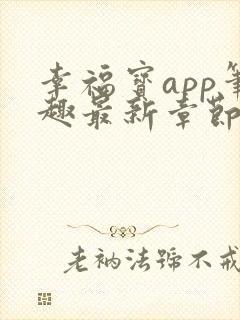 幸福寶app筆
趣最新章節
老衲法號不戒